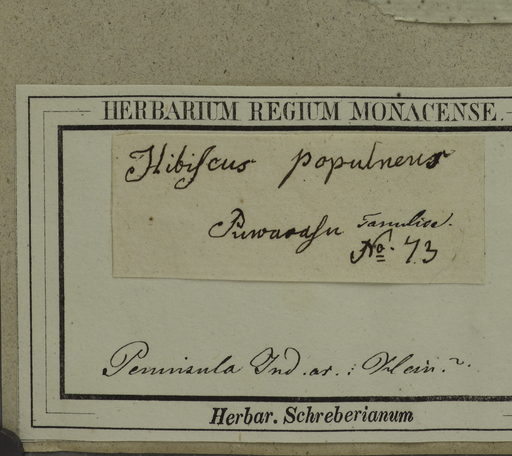 HERBARIUM REGIUM MONACENSE.
Hibiſcus populneus
Puwaraſu Tamulice.
No. 73
Peninsula Ind. or. : Klein.
Herbar. Schreberianum